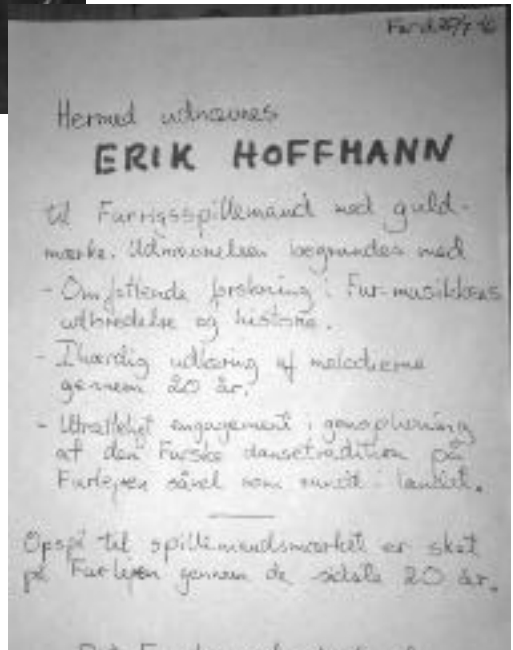 Hermed udnævnes
ERIK HOFFMANN
til Furrigsspillemand med guld-
mærke. Udnævnelsen begrundes med
- Omfattende forskning i Fur-musikkens
udbredelse og historie.
- Ihærdig udlæring af melodierne
gennem 20 år.
- Utrætteligt engagement i genoplivning
af den Furske dansetradition på
Furlejren såvel som rundt i landet.
Opspil til spillemandsmærket er sket
på Furlejren gennem de sidste 20 år.